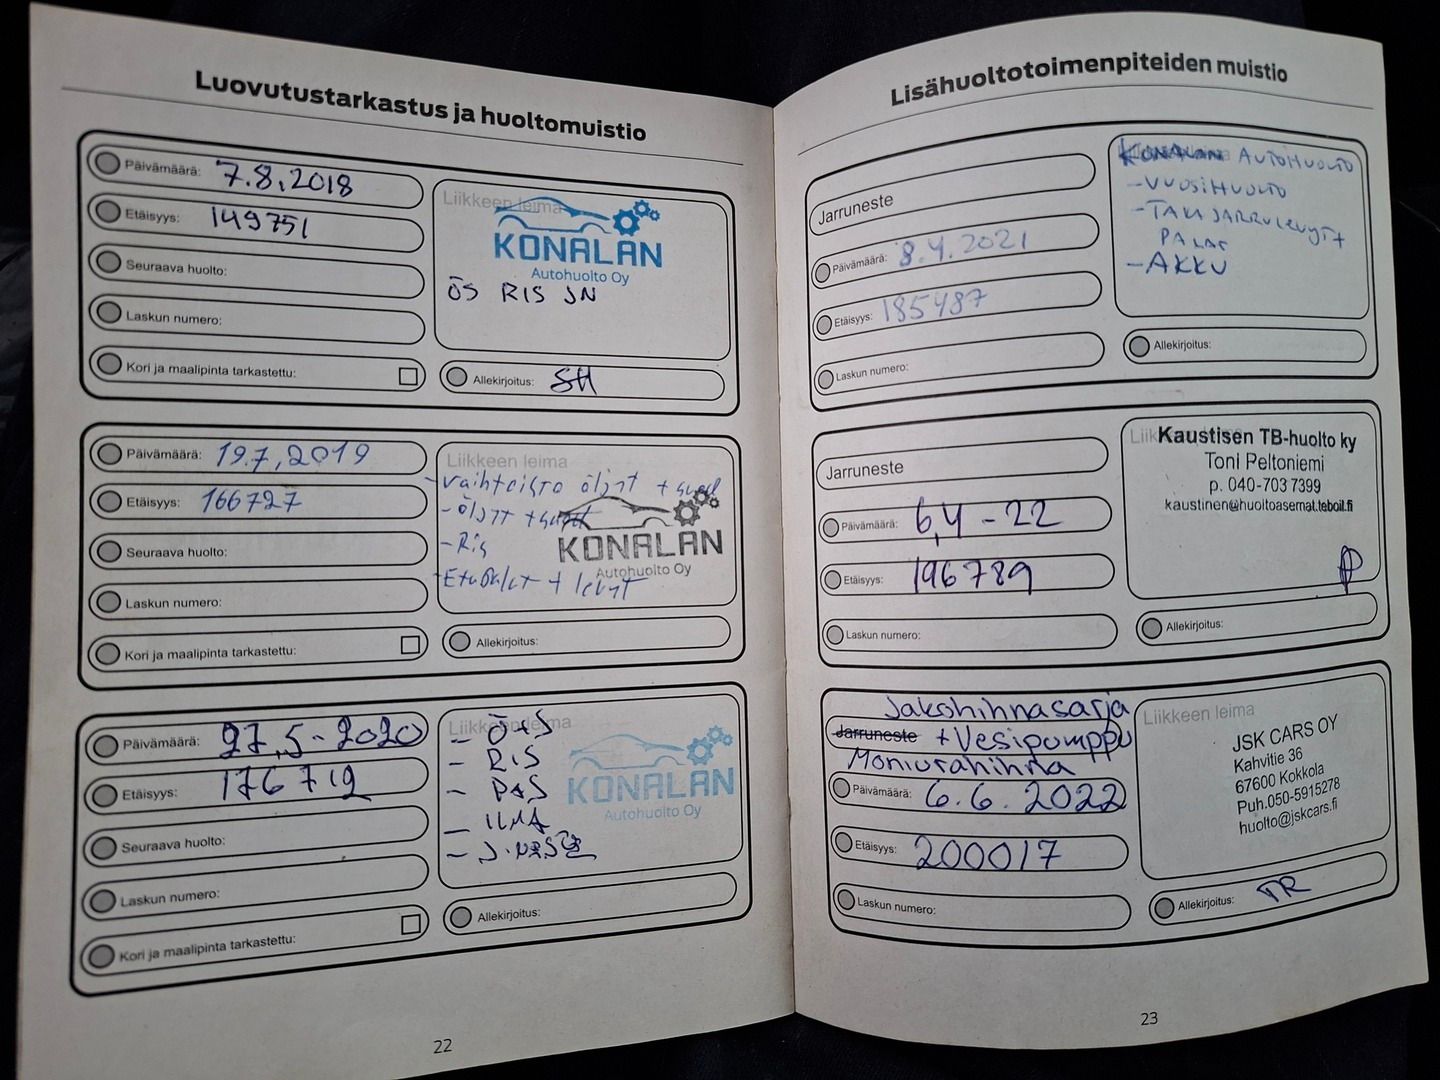 Luovutustarkastus ja huoltomuistio
Päivämäärä: 7.8.2018
Etäisyys: 149751
Seuraava huolto:
Laskun numero:
Kori ja maalipinta tarkastettu:
Liikkeen leima
KONALAN
Autohuolto Oy
ÖS RIS JN
Allekirjoitus: SH
Päivämäärä: 19.7.2019
Etäisyys: 166727
Seuraava huolto:
Laskun numero:
Kori ja maalipinta tarkastettu:
Liikkeen leima
-Vaihteisto öljyt + suod
-Öljyt + suod
-Ris
KONALAN
Autohuolto Oy
-Etupalat + levyt
Allekirjoitus:
Päivämäärä: 27.5-2020
Etäisyys: 176712
Seuraava huolto:
Laskun numero:
Kori ja maalipinta tarkastettu:
Liikkeen leima
- Ö+S
- RIS
- P+S
- ILMA
KONALAN
Autohuolto Oy
Allekirjoitus:
22
Lisähuoltotoimenpiteiden muistio
Jarruneste
Päivämäärä: 8.4.2021
Etäisyys: 185487
Laskun numero:
KONALAN AUTOHUOLTO
-VUOSIHUOLTO
-TAKAJARRULEVYT+
PALAT
-AKKU
Allekirjoitus:
Jarruneste
Päivämäärä: 6,4-22
Etäisyys: 196789
Laskun numero:
Liikkeen leima
Kaustisen TB-huolto ky
Toni Peltoniemi
p. 040-703 7399
kaustinen@huoltoasemat.teboil.fi
Allekirjoitus:
Jakohihnasarja
Jarruneste +Vesipumppu
Moniurahihna
Päivämäärä: 6.6.2022
Etäisyys: 200017
Laskun numero:
Liikkeen leima
JSK CARS OY
Kahvitie 36
67600 Kokkola
Puh.050-5915278
huolto@jskcars.fi
Allekirjoitus: TR
23